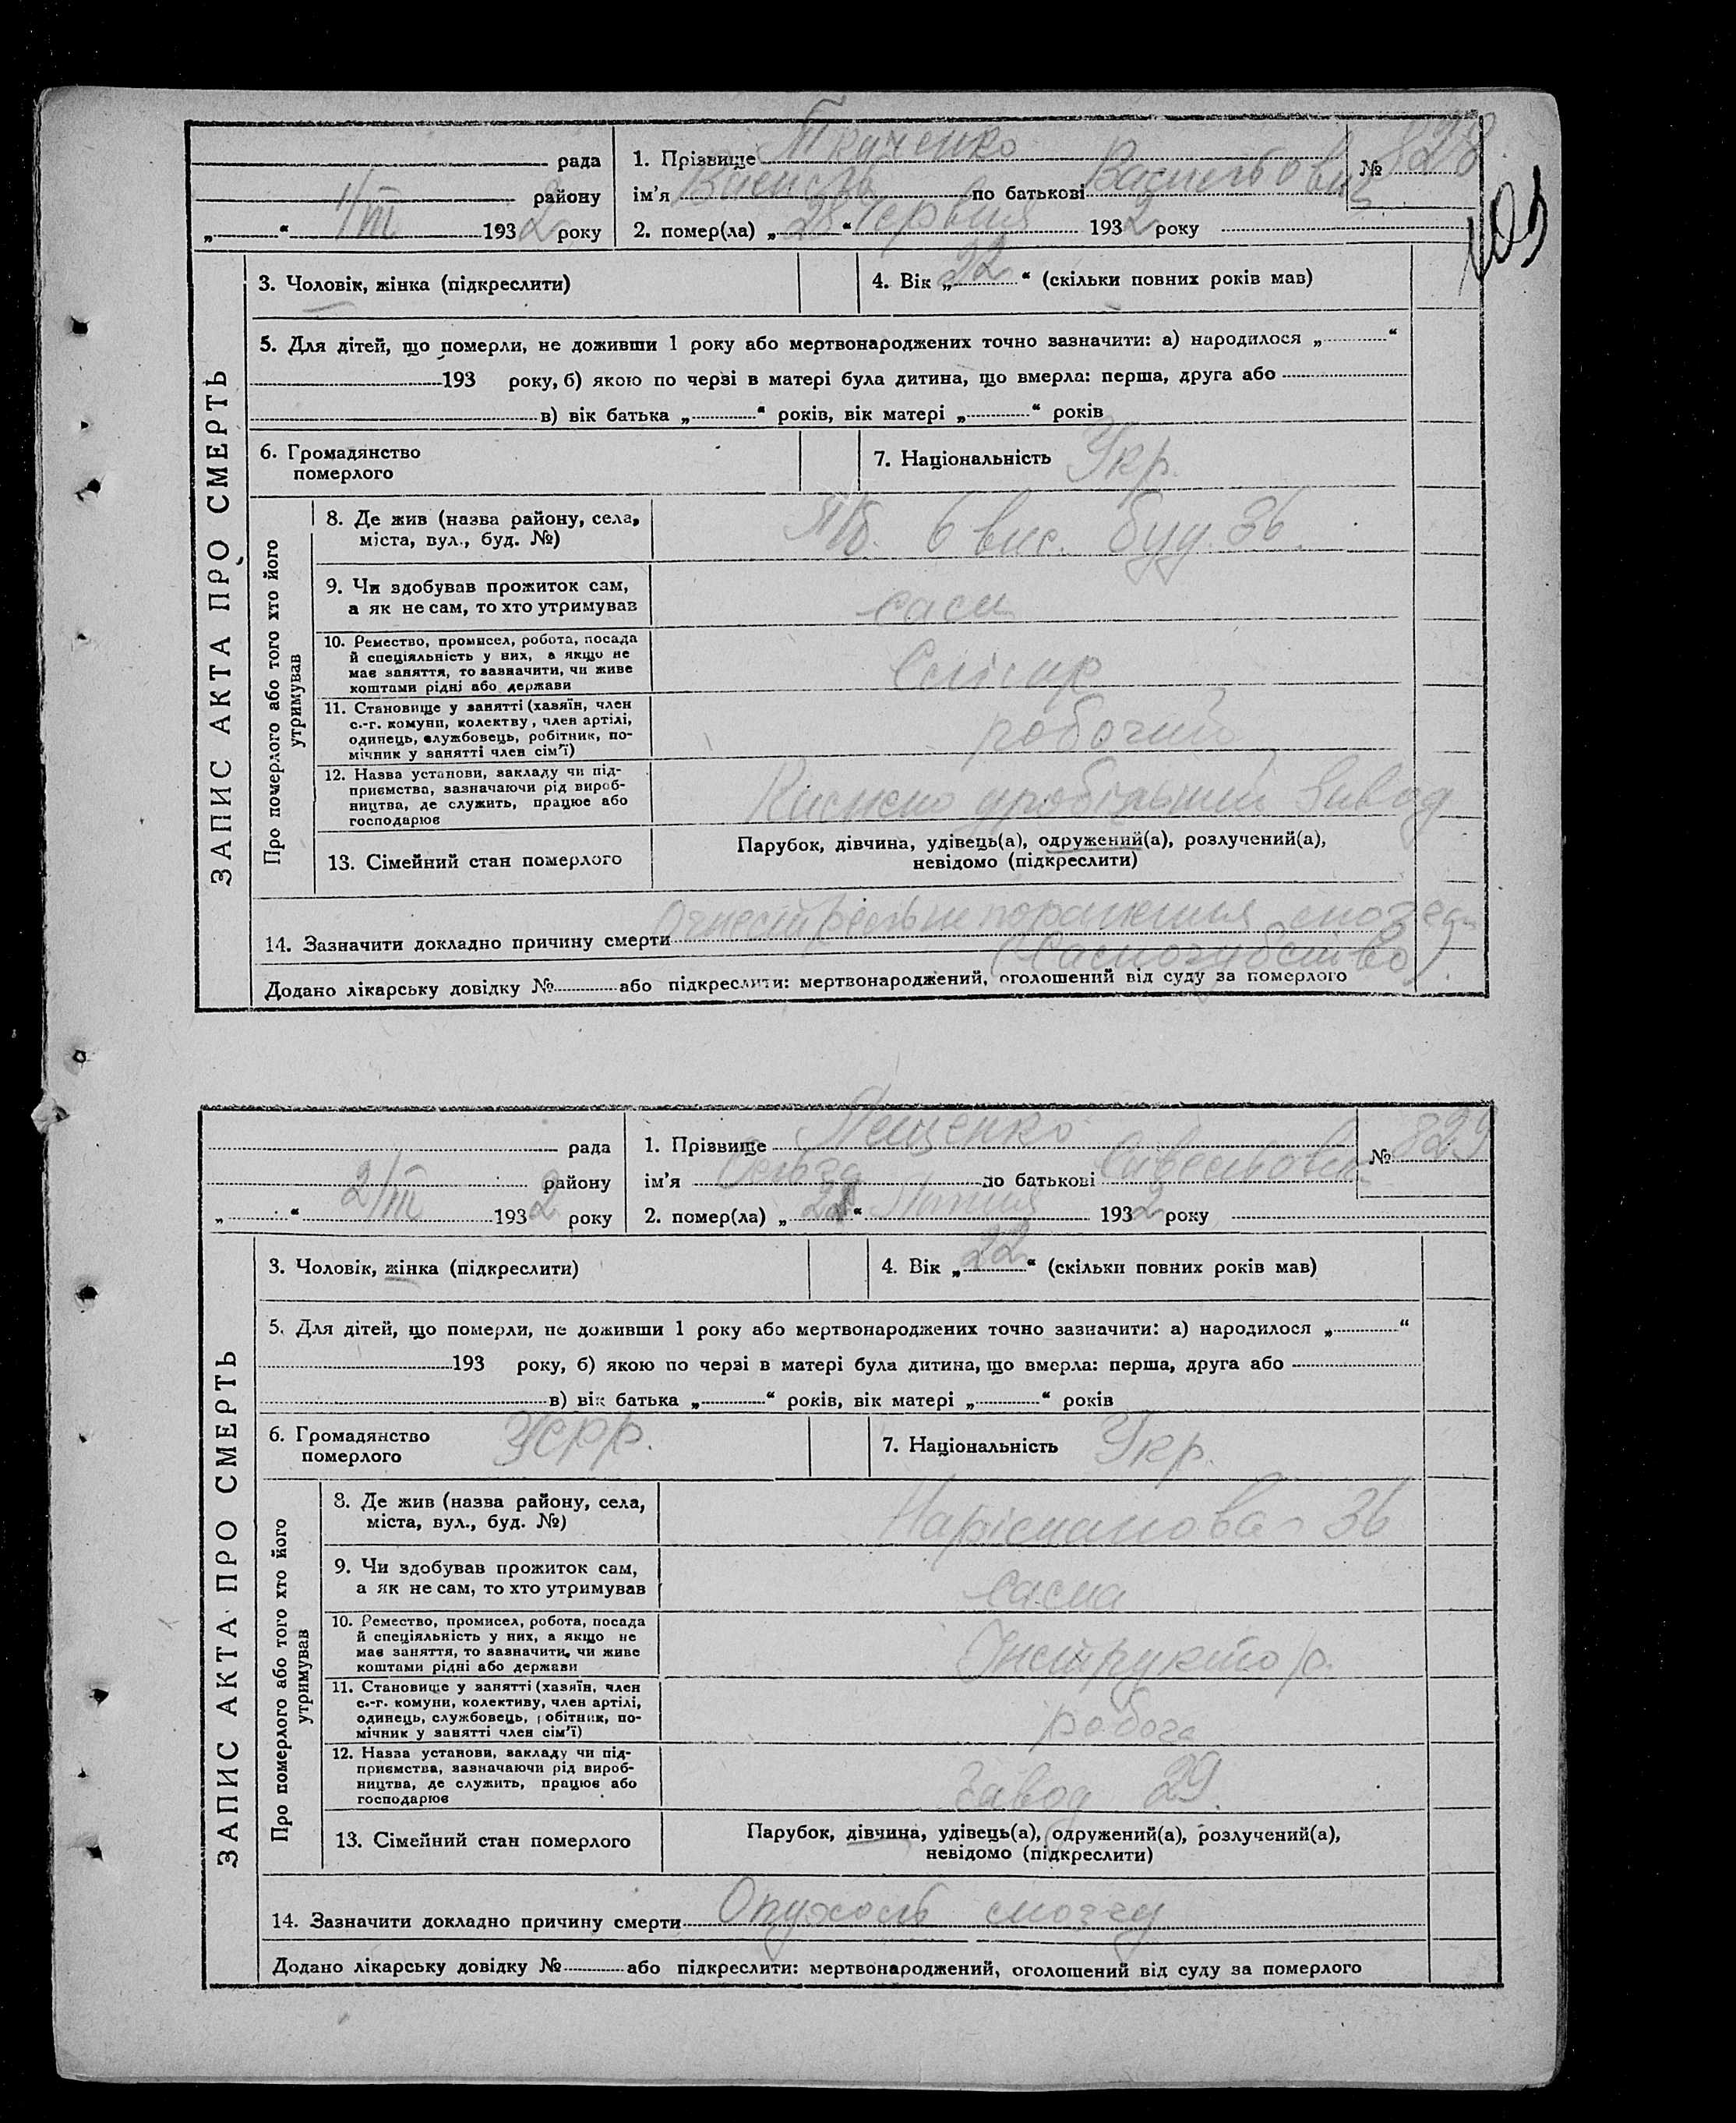 рада
району
1/III 1932 року
1. Прізвище Ткаченко
№ 828
ім'я Василь по батькові Васильович
2. помер(ла) „28“ Червня 1932 року
103
ЗАПИС АКТА ПРО СМЕРТЬ
3. Чоловік, жінка (підкреслити)
4. Вік „22“ (скільки повних років мав)
5. Для дітей, що померли, не доживши 1 року або мертвонароджених точно зазначити: а) народилося „ “
193 року, б) якою по черзі в матері була дитина, що вмерла: перша, друга або
в) вік батька „ “ років, вік матері „ “ років
6. Громадянство
померлого
7. Національність Укр.
Про померлого або того хто його
утримував
8. Де жив (назва району, села,
міста, вул., буд. №)
6 вис. буд. 36.
9. Чи здобував прожиток сам,
а як не сам, то хто утримував
сам
10. Ремество, промисел, робота, посада
й спеціяльність у них, а якщо не
має заняття, то зазначити, чи живе
коштами рідні або держави
Слісар
11. Становище у занятті (хазяїн, член
с.-г. комуни, колектву, член артілі,
одинець, службовець, робітник, по-
мічник у занятті член сім'ї)
робочий
12. Назва установи, закладу чи під-
приємства, зазначаючи рід вироб-
ництва, де служить, працює або
господарює
завод
13. Сімейний стан померлого
Парубок, дівчина, удівець(а), одружений(а), розлучений(а),
невідомо (підкреслити)
14. Зазначити докладно причину смерти Огнестрельне поранення мозга
(Самогубство).
Додано лікарську довідку № або підкреслити: мертвонароджений, оголошений від суду за померлого
рада
району
2/III 1932 року
1. Прізвище Лещенко
№ 829
ім'я Ольга по батькові
2. помер(ла) „21“ Липня 1932 року
ЗАПИС АКТА ПРО СМЕРТЬ
3. Чоловік, жінка (підкреслити)
4. Вік „22“ (скільки повних років мав)
5. Для дітей, що померли, не доживши 1 року або мертвонароджених точно зазначити: а) народилося „ “
193 року, б) якою по черзі в матері була дитина, що вмерла: перша, друга або
в) вік батька „ “ років, вік матері „ “ років
6. Громадянство
померлого
УСРР.
7. Національність Укр.
Про померлого або того хто його
утримував
8. Де жив (назва району, села,
міста, вул., буд. №)
Наріманова 36
9. Чи здобував прожиток сам,
а як не сам, то хто утримував
сама
10. Ремество, промисел, робота, посада
й спеціяльність у них, а якщо не
має заняття, то зазначити, чи живе
коштами рідні або держави
Інструктор.
11. Становище у занятті (хазяїн, член
с.-г. комуни, колективу, член артілі,
одинець, службовець, робітник, по-
мічник у занятті член сім'ї)
робоча
12. Назва установи, закладу чи під-
приємства, зазначаючи рід вироб-
ництва, де служить, працює або
господарює
Завод 29.
13. Сімейний стан померлого
Парубок, дівчина, удівець(а), одружений(а), розлучений(а),
невідомо (підкреслити)
14. Зазначити докладно причину смерти Опухоль мозгу
Додано лікарську довідку № або підкреслити: мертвонароджений, оголошений від суду за померлого